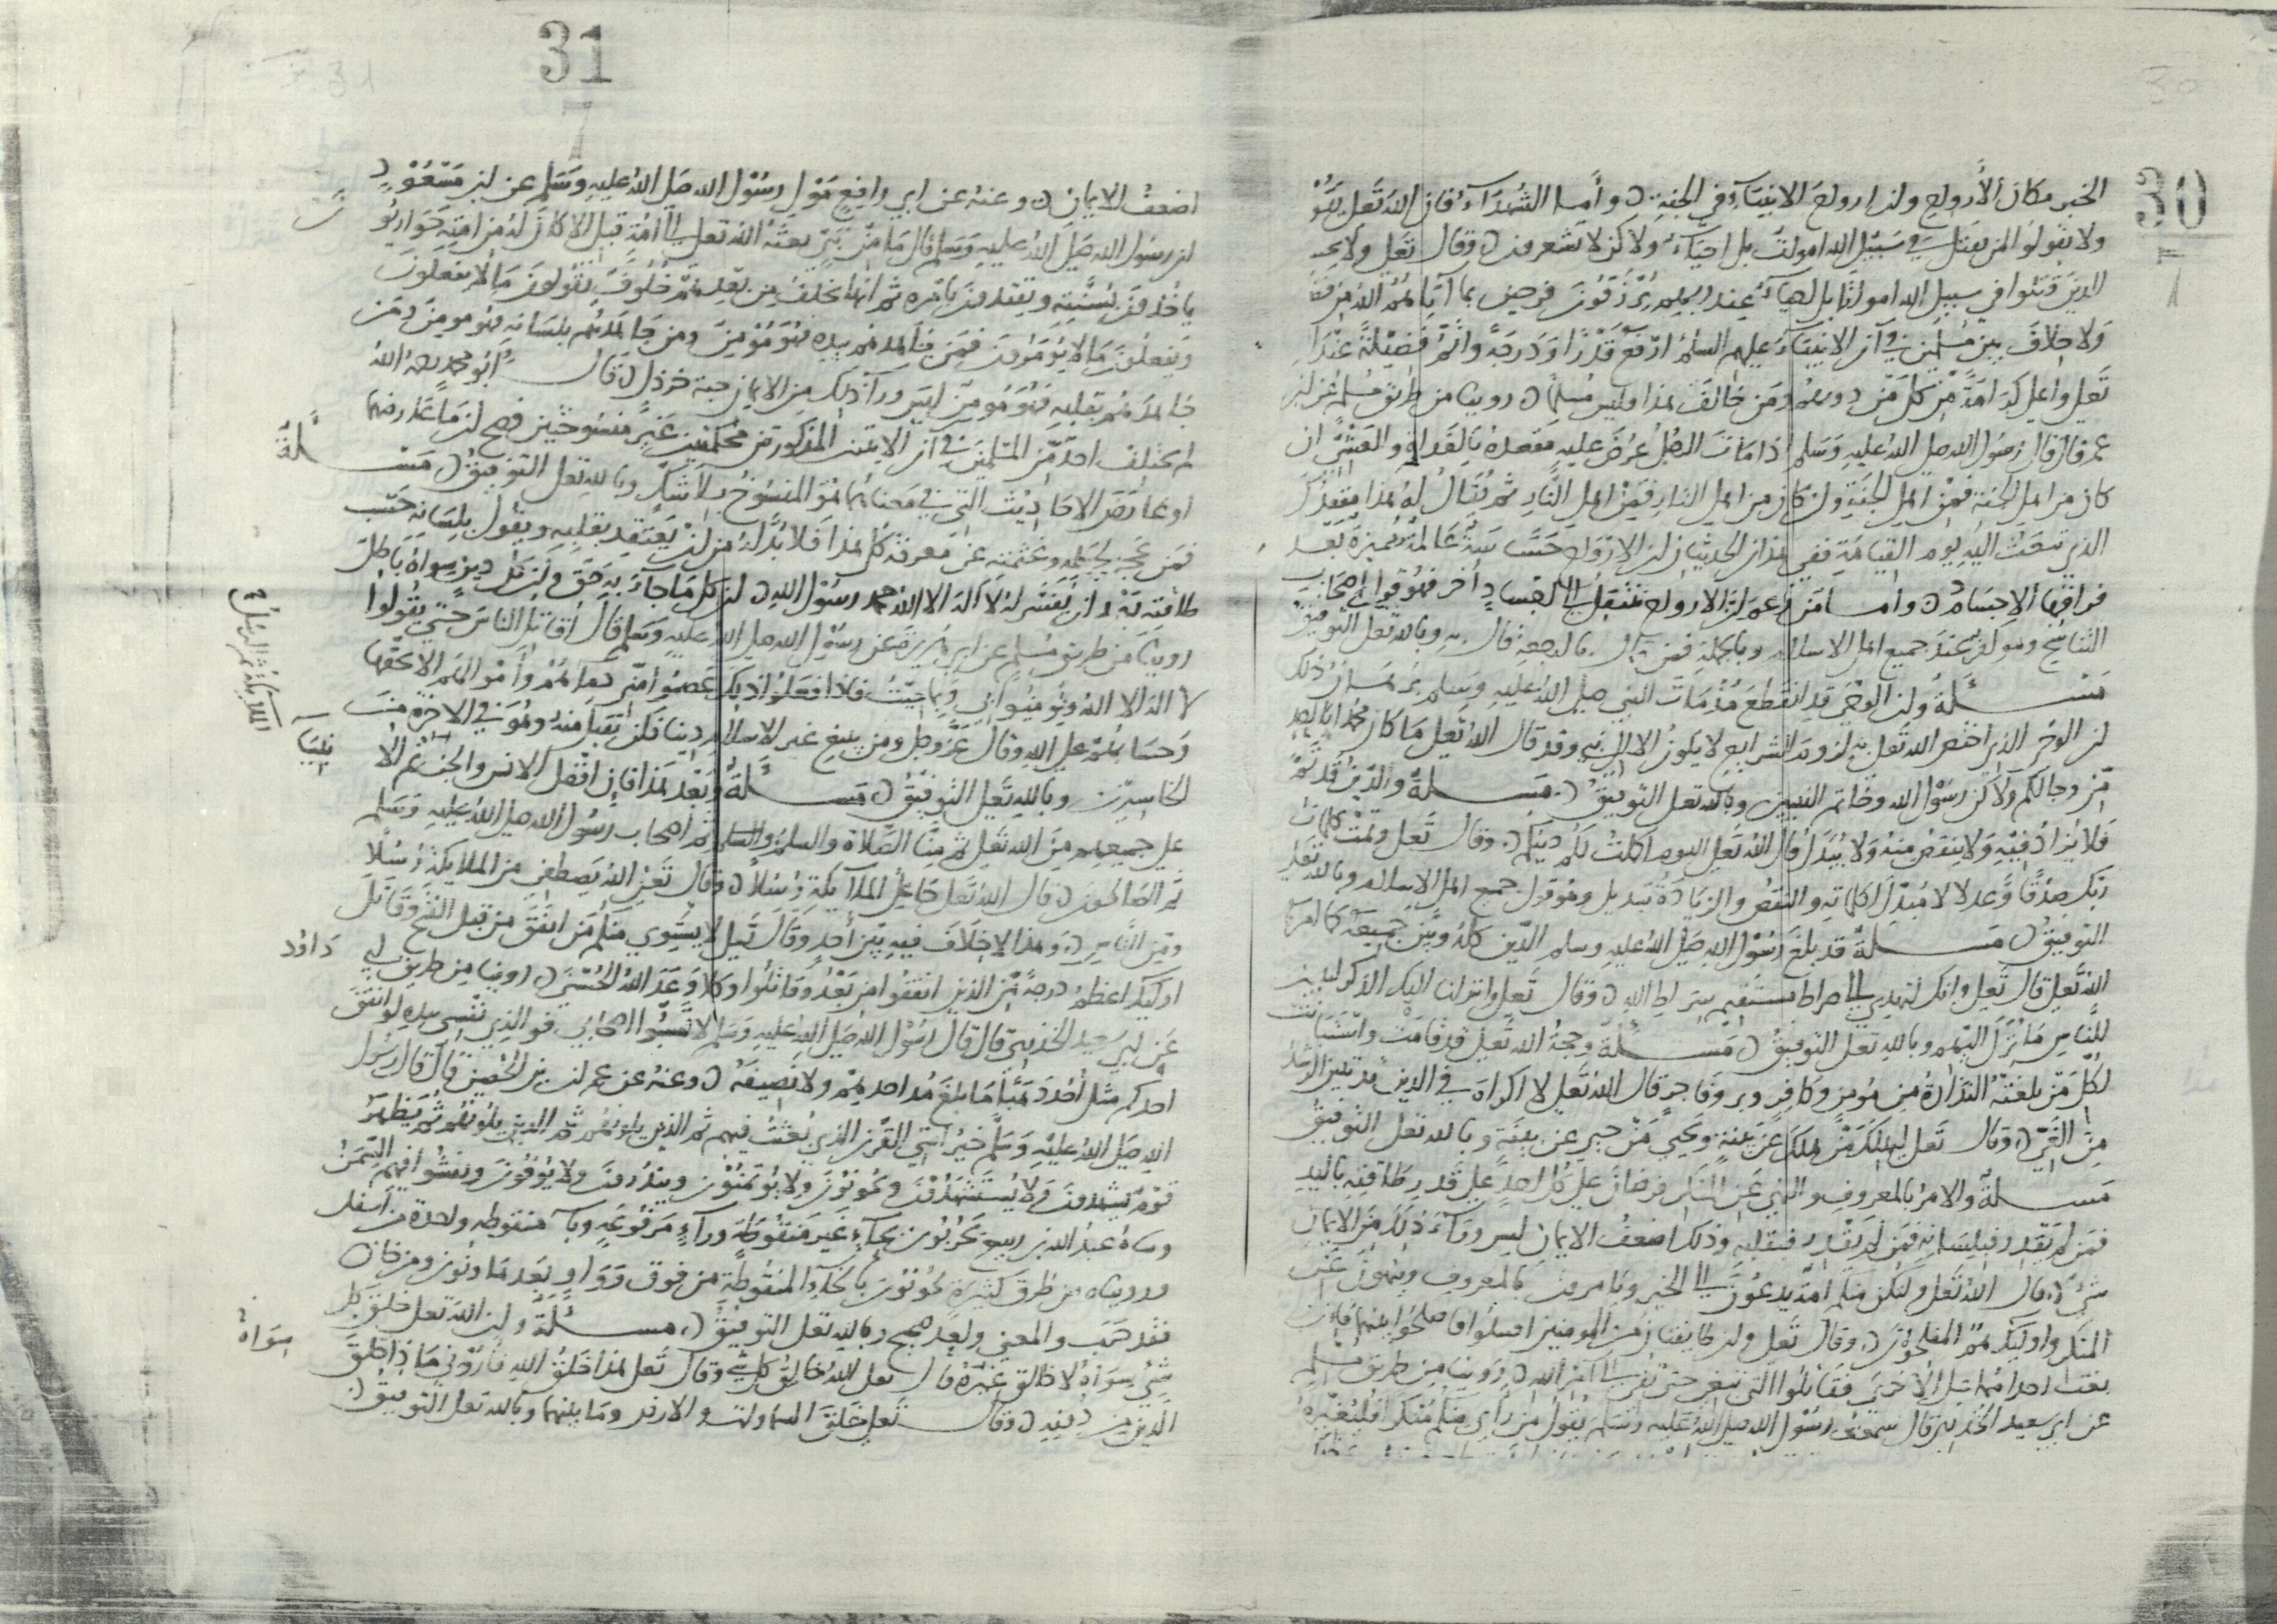 30
الخبر مكان الأرواح وان ارواح الانبياء في الجنة وأما الشهداء فان الله تعلى يقول
ولا تقولوا لمن يقتل في سبيل الله اموات بل احياء ولاكن لا تشعرون وقال تعلى ولا تحسبن
الذين قتلوا في سبيل الله امواتا بل احياء عند ربهم يرزقون فرحين بما آتاهم الله من فضله
ولا خلاف بين مسلمين في أن الانبياء عليهم السلم ارفع قدرا ودرجة واتم فضيلة عند الله
تعلى واعلى كرامة من كل من دونهم ومن خالف هذا فليس مسلما روينا من طريق مسلم عن ابن
عمر قال قال رسول الله صلى الله عليه وسلم اذا مات الرجل عرض عليه مقعده بالغداة والعشي ان
كان من اهل الجنة فمن اهل الجنة وان كان من اهل النار فمن اهل النار ثم يقال له هذا مقعدك
الذي تبعث اليه يوم القيامة ففي هذا الحديث ان الارواح حساسة عالمة مميزة بعد
فراقها الاجساد واما من زعم ان الارواح تنتقل الى اجساد أخر فهو قول اصحاب
التناسخ وهو كفر عند جميع اهل الاسلام وبالله تعلى التوفيق
مسئلة وان الوحي قد انقطع مذ مات النبي صلى الله عليه وسلم برهان ذلك
ان الوحي لا يكون الا الى نبي وقد قال الله تعلى ما كان محمد ابا احد
من رجالكم ولاكن رسول الله وخاتم النبيين وبالله تعلى التوفيق مسئلة والدين قد تم
فلا يزاد فيه ولا ينقص منه ولا يبدل قال الله تعلى اليوم اكملت لكم دينكم وقال تعلى وتمت كلمات
ربك صدقا وعدلا لا مبدل لكلماته والنقص والزيادة تبديل وهو قول جميع اهل الاسلام وبالله تعلى
التوفيق مسئلة قد بلغ رسول الله صلى الله عليه وسلم الدين كله وبين جميعه كما امره
الله تعلى قال تعلى وانك لتهدي الى صراط مستقيم صراط الله وقال تعلى وانزلنا اليك الذكر لتبين
للناس ما نزل اليهم وبالله تعلى التوفيق مسئلة وحجة الله تعلى قد قامت واستبانت
لكل من بلغته النذارة من مومن وكافر وبر وفاجر قال الله تعلى لا اكراه في الدين قد تبين الرشد
من الغي وقال تعلى ليهلك من هلك عن بينة ويحيى من حيي عن بينة وبالله تعلى التوفيق
مسئلة والامر بالمعروف والنهي عن المنكر فرضان على كل احد على قدر طاقته باليد
فمن لم يقدر فبلسانه فمن لم يقدر فبقلبه وذلك اضعف الايمان ليس وراء ذلك من الايمان
شي قال الله تعلى ولتكن منكم امة يدعون الى الخير ويامرون بالمعروف وينهون عن
المنكر واوليك هم المفلحون وقال تعلى وان طايفتان من المومنين اقتتلوا فاصلحوا بينهما فان
بغت احداهما على الأخرى فقاتلوا التي تبغي حتى تفي الى امر الله روينا من طريق مسلم
عن ابي سعيد الخدري قال سمعت رسول الله صلى الله عليه وسلم يقول من رأى منكم منكرا فليغيره
31
اضعف الايمان وعنه عن ابي رافع مولى رسول الله صلى الله عليه وسلم عن ابن مسعود
ان رسول الله صلى الله عليه وسلم قال ما من نبي بعثه الله تعلى الى أمة قبلي الا كان له من امته حواريون
ياخذون بسنته ويقتدون بامره ثم انها تخلف من بعدهم خلوف يقولون ما لا يفعلون
ويفعلون ما لا يؤمرون فمن جاهدهم بيده فهو مؤمن ومن جاهدهم بلسانه فهو مومن ومن
جاهدهم بقلبه فهو مومن ليس وراء ذلك من الايمان حبة خردل قال أبو محمد رحمه الله
لم يختلف احد من المسلمين في ان الايتين المذكورتين محكمتين غير منسوختين فصح ان ما عارضهما
او عارض الاحاديث التي في معناهما هو المنسوخ بلا شك وبالله تعلى التوفيق مسئلة
فمن عجز لجهله وعتمته عن معرفة كل هذا فلا بد له من ان يعتقد بقلبه ويقول بلسانه حسب
طاقته بعد ان يفسر له لا اله الا الله محمد رسول الله ان كل ما جاء به حق وان كل دين سواه باطل
روينا من طريق مسلم عن ابي هريرة عن رسول الله صلى الله عليه وسلم قال أقاتل الناس حتى يقولوا
لا اله الا الله ويؤمنوا بي وبما جيت به فاذا فعلوا ذلك عصموا مني دماءهم وأموالهم الا بحقها
وحسابهم على الله وقال عز وجل ومن يبتغ غير الاسلام دينا فلن يقبل منه وهو في الاخرة من
الخاسرين وبالله تعلى التوفيق مسئلة وبعد هذا فان افضل الانس والجن ثم الا نبياء
الملائكة ثم الرسل
على جميعهم من الله تعلى ثم منا الصلاة والسلم ثم اصحاب رسول الله صلى الله عليه وسلم
ثم الصالحون قال الله تعلى جاعل الملايكة رسلا وقال تعلى الله يصطفي من الملايكة رسلا
ومن الناس وهذا لا خلاف فيه بين أحد وقال تعلى لا يستوي منكم من انفق من قبل الفتح وقاتل
اوليك اعظم درجة من الذين انفقوا من بعد وقاتلوا وكلا وعد الله الحسنى روينا من طريق ابي داود
عن ابي سعيد الخدري قال قال رسول الله صلى الله عليه وسلم لا تسبوا اصحابي فوالذي نفسي بيده لو انفق
احدكم مثل أحد ذهبا ما بلغ مد احدهم ولا نصيفه وعنه عن عمران بن الحصين قال قال رسول
الله صلى الله عليه وسلم خير امتي القرن الذي بعثت فيهم ثم الذين يلونهم ثم الذين يلونهم ثم يظهر
قوم يشهدون ولا يستشهدون ويخونون ولا يؤتمنون وينذرون ولا يوفون ويفشوا فيهم السمن
ورواه عبد الله بن ربيع يحربون بحاء غير منقوطة وراء مرفوعة وباء منقوطة واحدة من اسفل
ورويناه من طرق كثيرة يخونون بالخاء المنقوطة من فوق وواو بعدها ونون ومن خان
فقد حرب والمعنى واحد صحيح وبالله تعلى التوفيق مسئلة وان الله تعلى خلق كل
شي سواه لا خالق غيره قال تعلى الله خالق كل شي وقال تعلى هذا خلق الله فاروني ماذا خلق
الذين من دونه وقال تعلى خلق السماوات والارض وما بينهما وبالله تعلى التوفيق
سواه